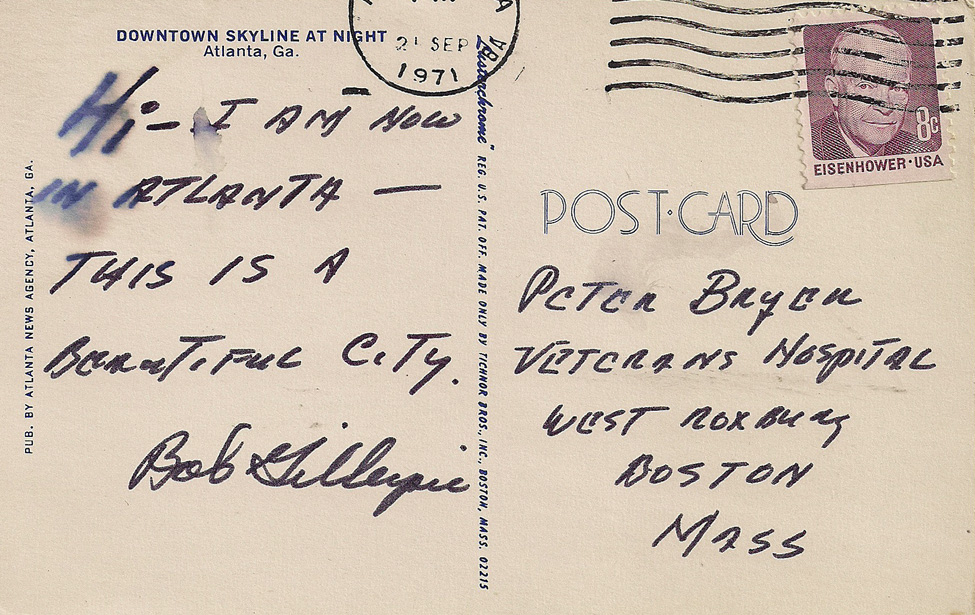 DOWNTOWN SKYLINE AT NIGHT
Atlanta, Ga.
Hi - I AM NOW
IN ATLANTA —
THIS IS A
BEAUTIFUL CITY.
Bob Gillespie
PUB. BY ATLANTA NEWS AGENCY, ATLANTA, GA.
"Lusterchrome" REG. U.S. PAT. OFF. MADE ONLY BY TICHNOR BROS., INC., BOSTON, MASS. 02215
21 SEP
1971
8c
EISENHOWER·USA
POST·CARD
PETER BRYER
VETERANS HOSPITAL
WEST ROXBURY
BOSTON
MASS